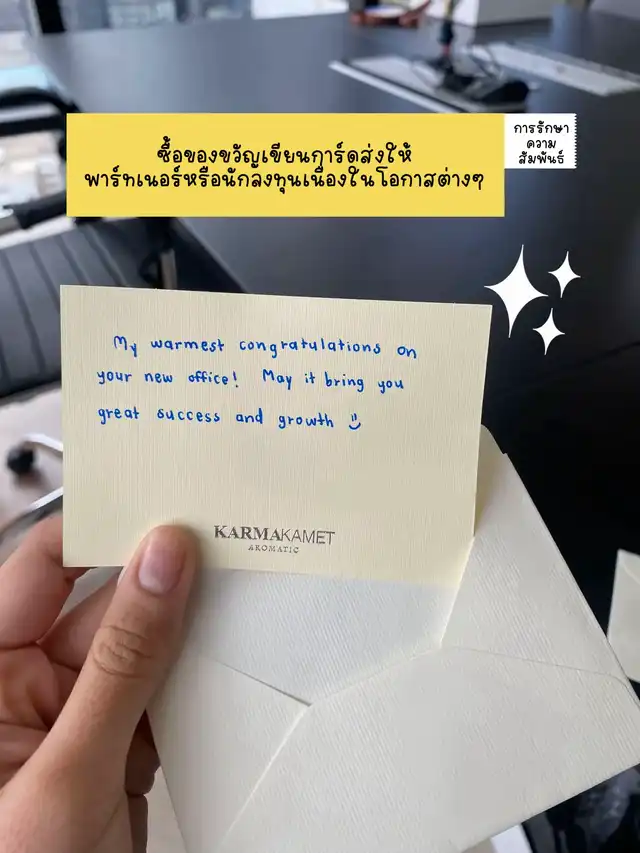 ซื้อของขวัญเขียนการ์ดส่งให้
พาร์ทเนอร์หรือนักลงทุนเนื่องในโอกาสต่างๆ
การรักษา
ความ
สัมพันธ์
My warmest congratulations on
your new office! May it bring you
great success and growth
KARMAKAMET
AROMATIC